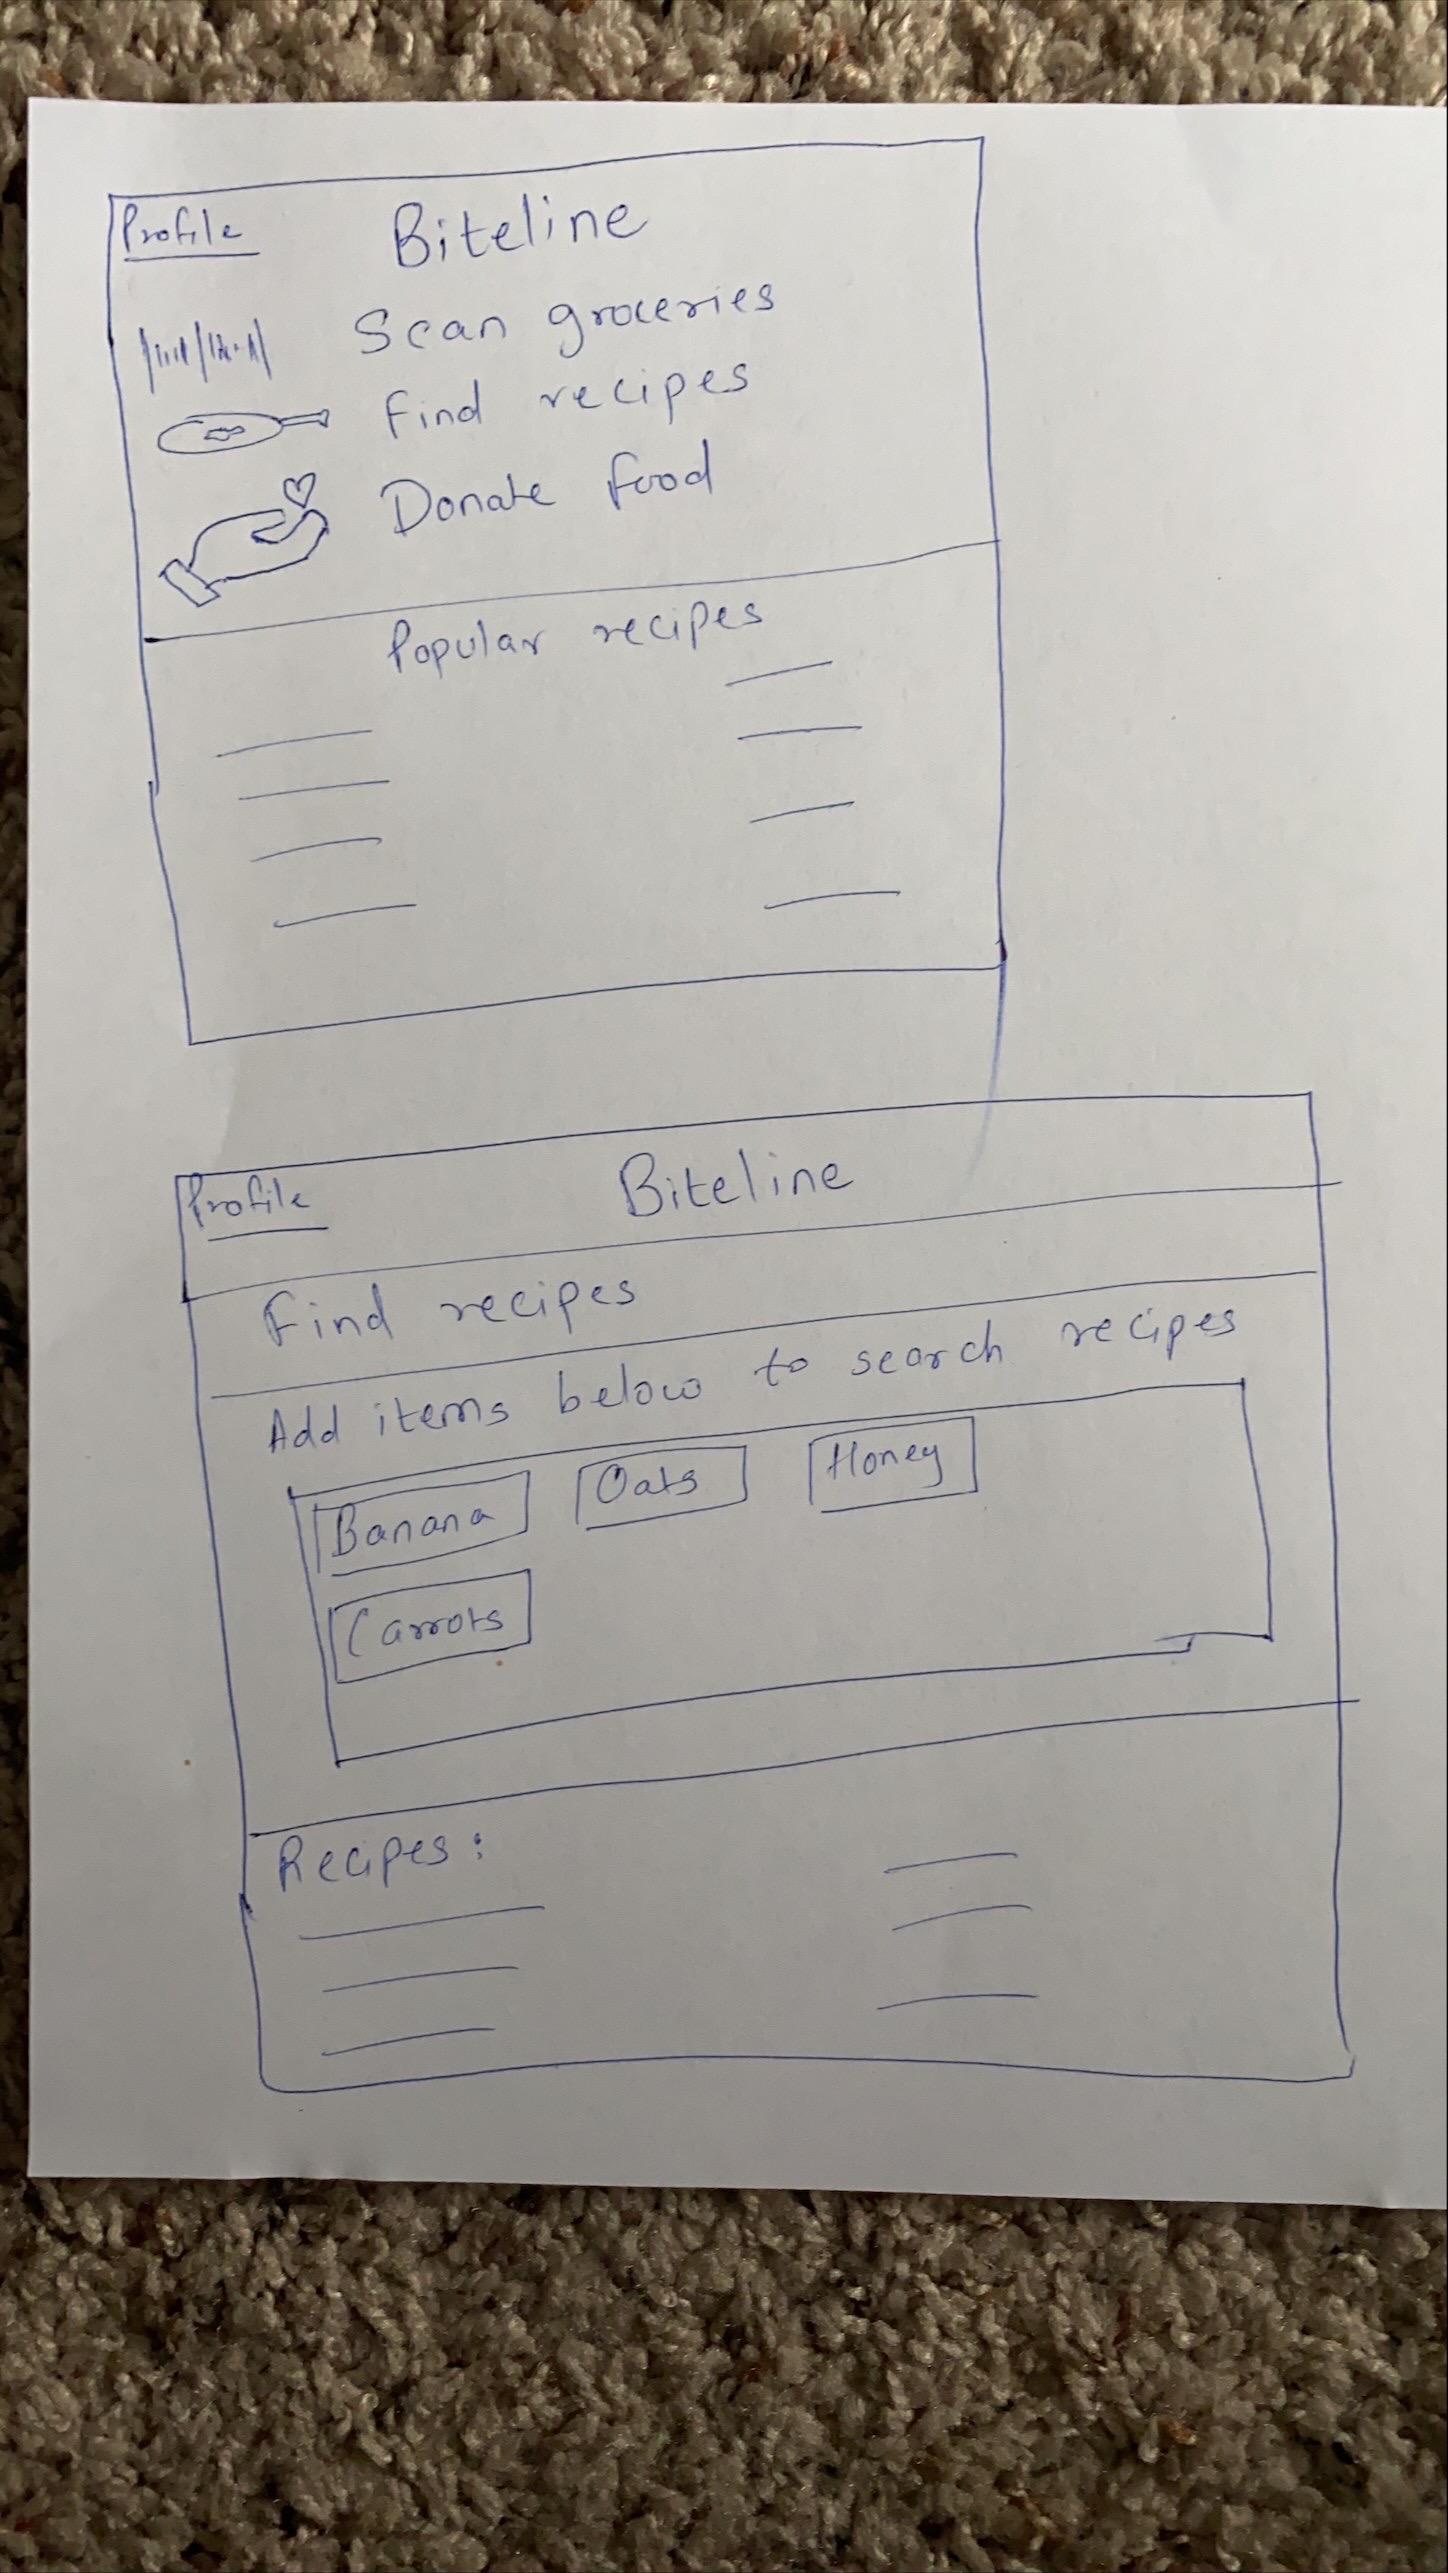 Profile Biteline
Scan groceries
Find recipes
Donate food
Popular recipes
Profile Biteline
Find recipes
Add items below to search recipes
Banana Oats Honey
Carrots
Recipes: